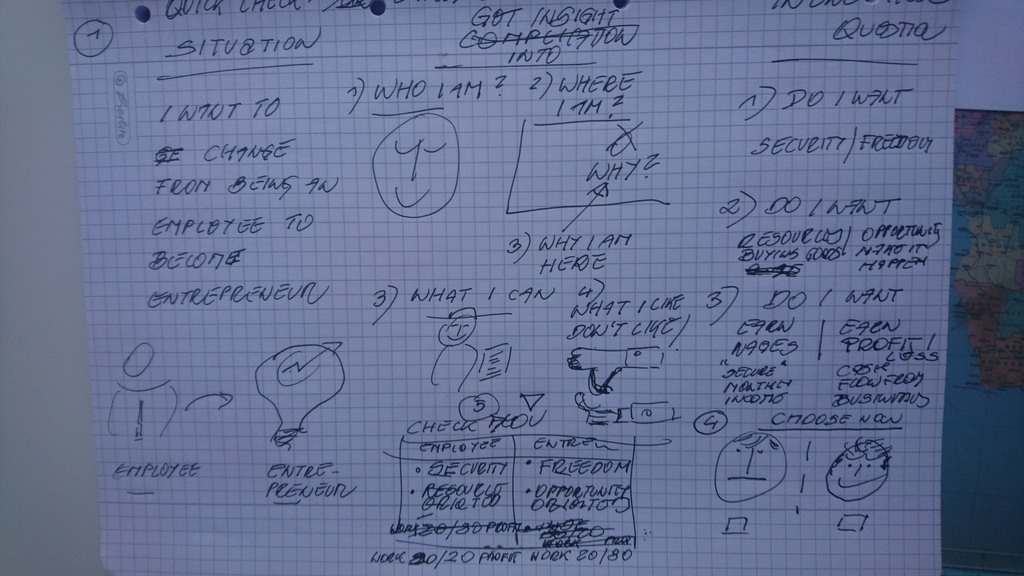 QUICK CHECK:
1
SITUATION
I WANT TO
CHANGE
FROM BEING AN
EMPLOYEE TO
BECOME
ENTREPRENEUR
EMPLOYEE
ENTRE-
PRENEUR
GET INSIGHT
COMPLICATION
INTO
1) WHO I AM?
2) WHERE
I AM?
WHY?
3) WHY I AM
HERE
3) WHAT I CAN
4)
WHAT I LIKE
DON'T LIKE/
5
CHECK YOU
EMPLOYEE
ENTREN
• SECURITY
• FREEDOM
• RESOURCE
• OPPORTUNITY
WORK 80/20 PROFIT WORK 20/80
QUESTION
1) DO I WANT
SECURITY/FREEDOM
2) DO I WANT
RESOURCES/ OPPORTUNITY
BUYING GOODS MAKE IT
HAPPEN
3) DO I WANT
EARN
WAGES
"SECURE"
MONTHLY
INCOME
EARN
PROFIT/
LOSS
CASH
FLOW FROM
BUSINESS
4
CHOOSE NOW